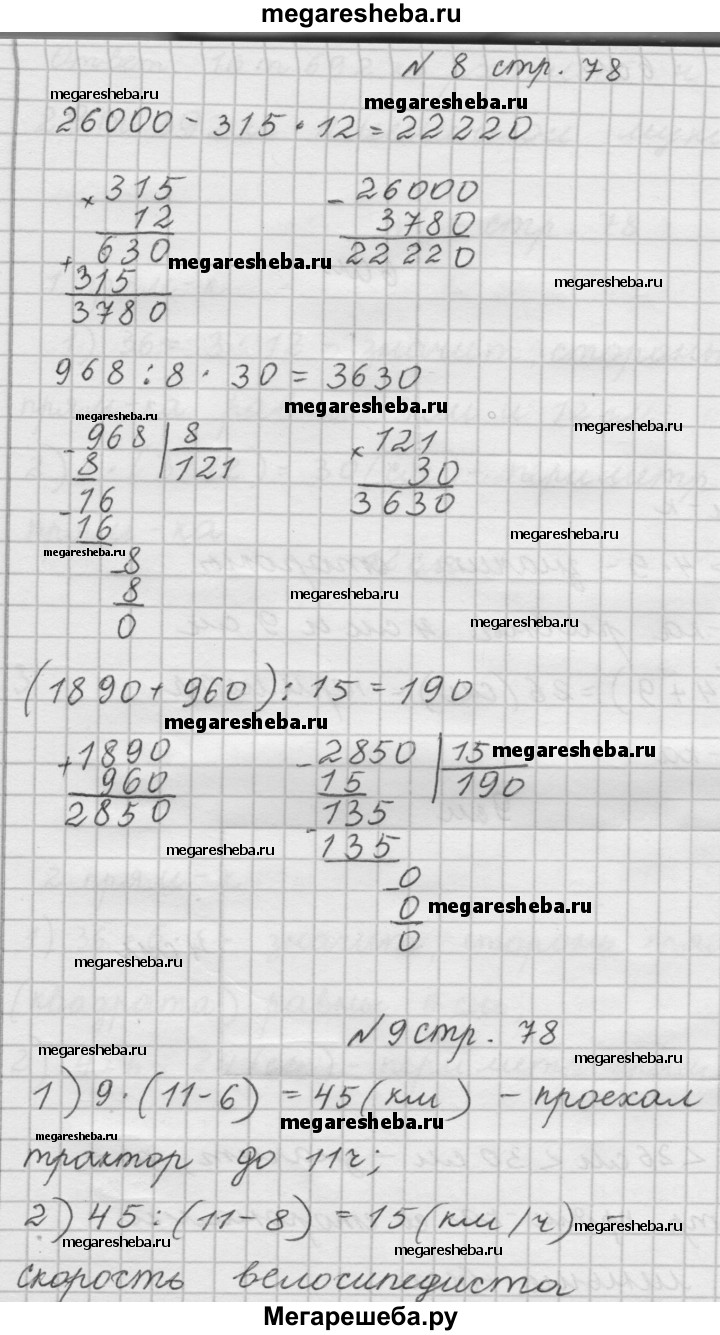 megaresheba.ru
N 8 стр. 78
megaresheba.ru
megaresheba.ru
26000 - 315 · 12 = 22220
× 315 - 26000
12 3780
+ 630 22220
megaresheba.ru
315
megaresheba.ru
3780
968 : 8 · 30 = 3630
megaresheba.ru
megaresheba.ru
- 968 | 8 × 121
8 121 30
- 16 3630
16
megaresheba.ru
megaresheba.ru
- 8
8
megaresheba.ru
0
megaresheba.ru
(1890 + 960) : 15 = 190
megaresheba.ru
+ 1890 - 2850 | 15
megaresheba.ru
960 15 190
2850 - 135
135
megaresheba.ru
- 0
0
megaresheba.ru
0
megaresheba.ru
N 9 стр. 78
megaresheba.ru
megaresheba.ru
1) 9 · (11 - 6) = 45 (км) - проехал
megaresheba.ru
megaresheba.ru
трактор до 11ч;
2) 45 : (11 - 8) = 15 (км/ч) -
megaresheba.ru
megaresheba.ru
megaresheba.ru
скорость велосипедиста
Мегарешеба.ру